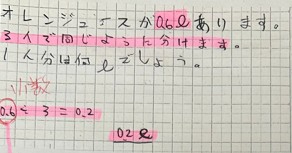 オレンジュースが0.6ℓあります。
3人で同じように分けます。
1人分は何ℓでしょう。
小数
0.6÷3=0.2
0.2ℓ